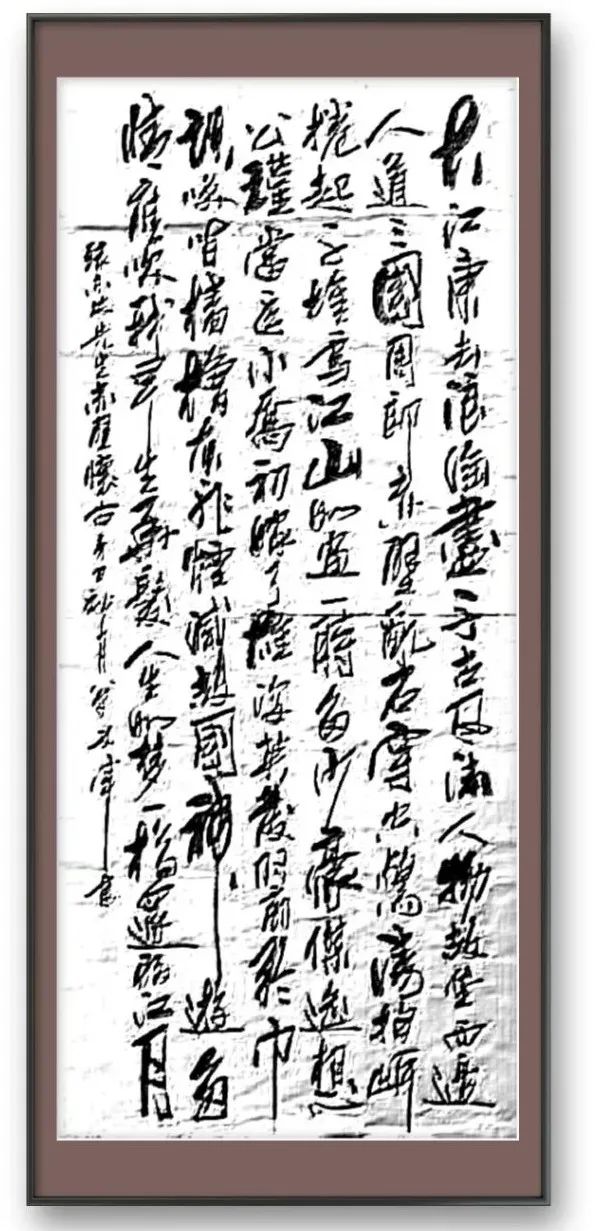 大江東去浪淘盡千古風流人物故垒西邊
人道三國周郎赤壁亂石穿空驚濤拍岸
捲起千堆雪江山如畫一時多少豪傑遙想
公瑾當年小喬初嫁了雄姿英發羽扇綸巾
談笑間檣櫓灰飛煙滅故國神遊多
情應笑我早生華髮人生如夢一樽還酹江月
蘇东坡先生赤壁懷古 月 書